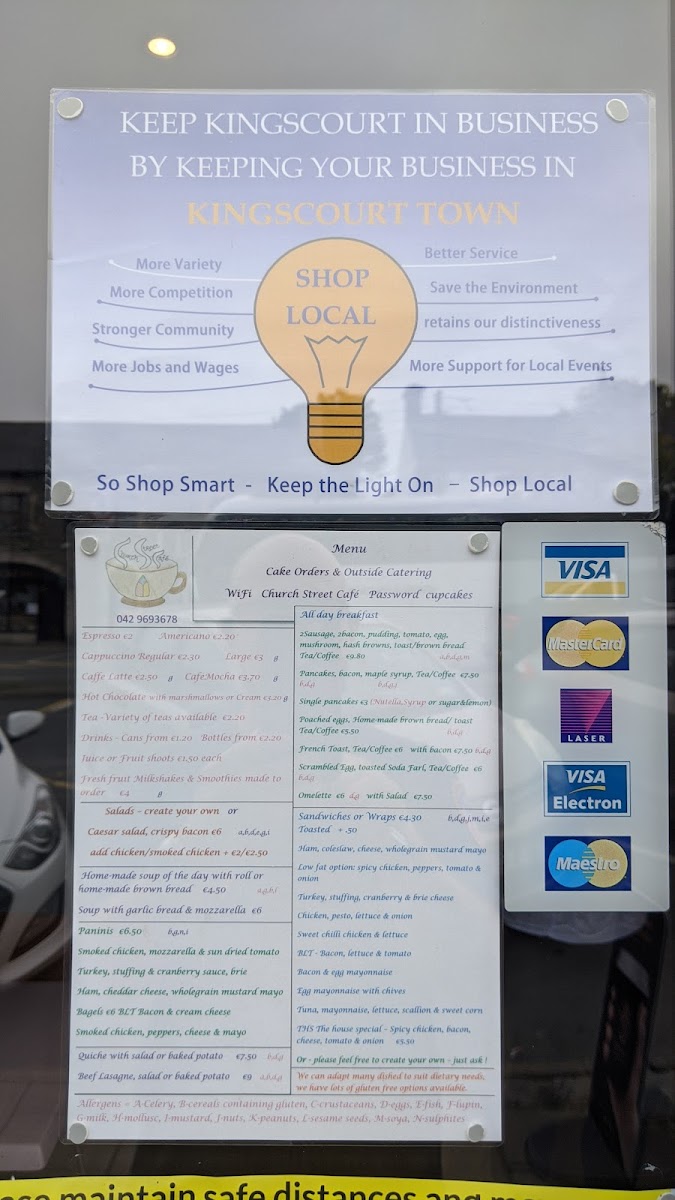 KEEP KINGSCOURT IN BUSINESS
BY KEEPING YOUR BUSINESS IN
KINGSCOURT TOWN
More Variety
More Competition
Stronger Community
More Jobs and Wages
SHOP
LOCAL
Better Service
Save the Environment
retains our distinctiveness
More Support for Local Events
So Shop Smart - Keep the Light On – Shop Local
042 9693678
Menu
Cake Orders & Outside Catering
WiFi Church Street Café Password cupcakes
Espresso €2 Americano €2.20
Cappuccino Regular €2.30 Large €3 g
Caffe Latte €2.50 g CafeMocha €3.70 g
Hot Chocolate with marshmallows or Cream €3.20 g
Tea -Variety of teas available €2.20
Drinks - Cans from €1.20 Bottles from €2.20
Juice or Fruit shoots €1.50 each
Fresh fruit Milkshakes & Smoothies made to
order €4 g
Salads – create your own or
Caesar salad, crispy bacon €6 a,b,d,g,i
add chicken/smoked chicken + €2/€2.50
Home-made soup of the day with roll or
home-made brown bread €4.50
Soup with garlic bread & mozzarella €6
Paninis €6.50
Smoked chicken, mozzarella & sun dried tomato
Turkey, stuffing & cranberry sauce, brie
Ham, cheddar cheese, wholegrain mustard mayo
Bagels €6 BLT Bacon & cream cheese
Smoked chicken, peppers, cheese & mayo
Quiche with salad or baked potato €7.50 b,d,g
Beef Lasagne, salad or baked potato €9
All day breakfast
2Sausage, 2bacon, pudding, tomato, egg,
mushroom, hash browns, toast/brown bread
Tea/Coffee €9.80
Pancakes, bacon, maple syrup, Tea/Coffee €7.50
b,d,g
Single pancakes €3 (Nutella,Syrup or sugar&lemon)
Poached eggs, Home-made brown bread/ toast
Tea/Coffee €5.50 b,d,g
French Toast, Tea/Coffee €6 with bacon €7.50 b,d,g
Scrambled Egg, toasted Soda Farl, Tea/Coffee €6
b,d,g
Omelette €6 d,g with Salad €7.50
Sandwiches or Wraps €4.30
Toasted + .50
Ham, coleslaw, cheese, wholegrain mustard mayo
Low fat option: spicy chicken, peppers, tomato &
onion
Turkey, stuffing, cranberry & brie cheese
Chicken, pesto, lettuce & onion
Sweet chilli chicken & lettuce
BLT - Bacon, lettuce & tomato
Bacon & egg mayonnaise
Egg mayonnaise with chives
Tuna, mayonnaise, lettuce, scallion & sweet corn
THS The house special – Spicy chicken, bacon,
cheese, tomato & onion €5.50
Or - please feel free to create your own – just ask !
We can adapt many dished to suit dietary needs,
we have lots of gluten free options available.
Allergens = A-Celery, B-cereals containing gluten, C-crustaceans, D-eggs, E-fish, F-lupin,
G-milk, H-mollusc, I-mustard, J-nuts, K-peanuts, L-sesame seeds, M-soya, N-sulphites
VISA
MasterCard
LASER
VISA
Electron
Maestro
maintain safe distances and